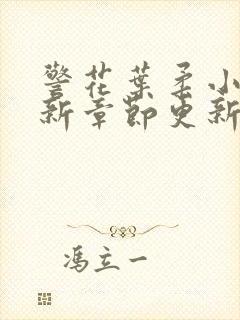 警花葉柔小
新章節更新
馮立一